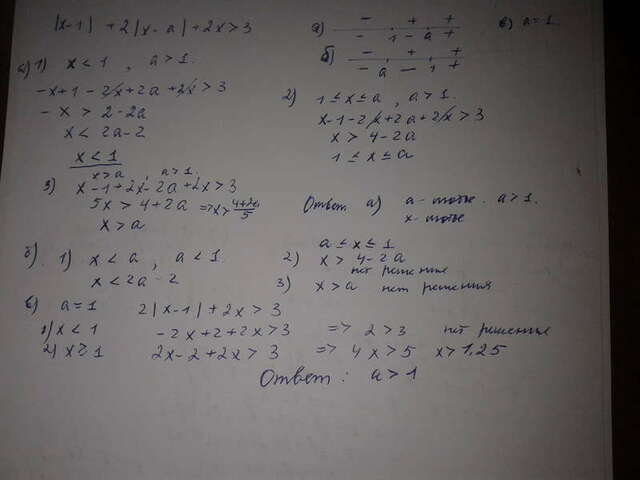 |x-1| + 2|x-a| + 2x > 3
а) - + +
- 1 - a +
б) - + +
- a - 1 +
в) a = 1.
а) 1) x < 1 , a > 1.
-x+1-2x+2a+2x > 3
-x > 2-2a
x < 2a-2
x < 1
2) 1 ≤ x ≤ a , a > 1.
x-1-2x+2a+2x > 3
x > 4-2a
1 ≤ x ≤ a
3) x > a, a > 1,
x-1+2x-2a+2x > 3
5x > 4+2a => x > (4+2a)/5
x > a
Ответ а) a - любое. a > 1.
x - любое
б) 1) x < a , a < 1.
x < 2a-2
2) a ≤ x ≤ 1
x > 4-2a
нет решения
3) x > a нет решения
в) a = 1 2|x-1| + 2x > 3
1) x < 1 -2x+2+2x > 3 => 2 > 3 нет решение
2) x ≥ 1 2x-2+2x > 3 => 4x > 5 x > 1,25
Ответ: a > 1